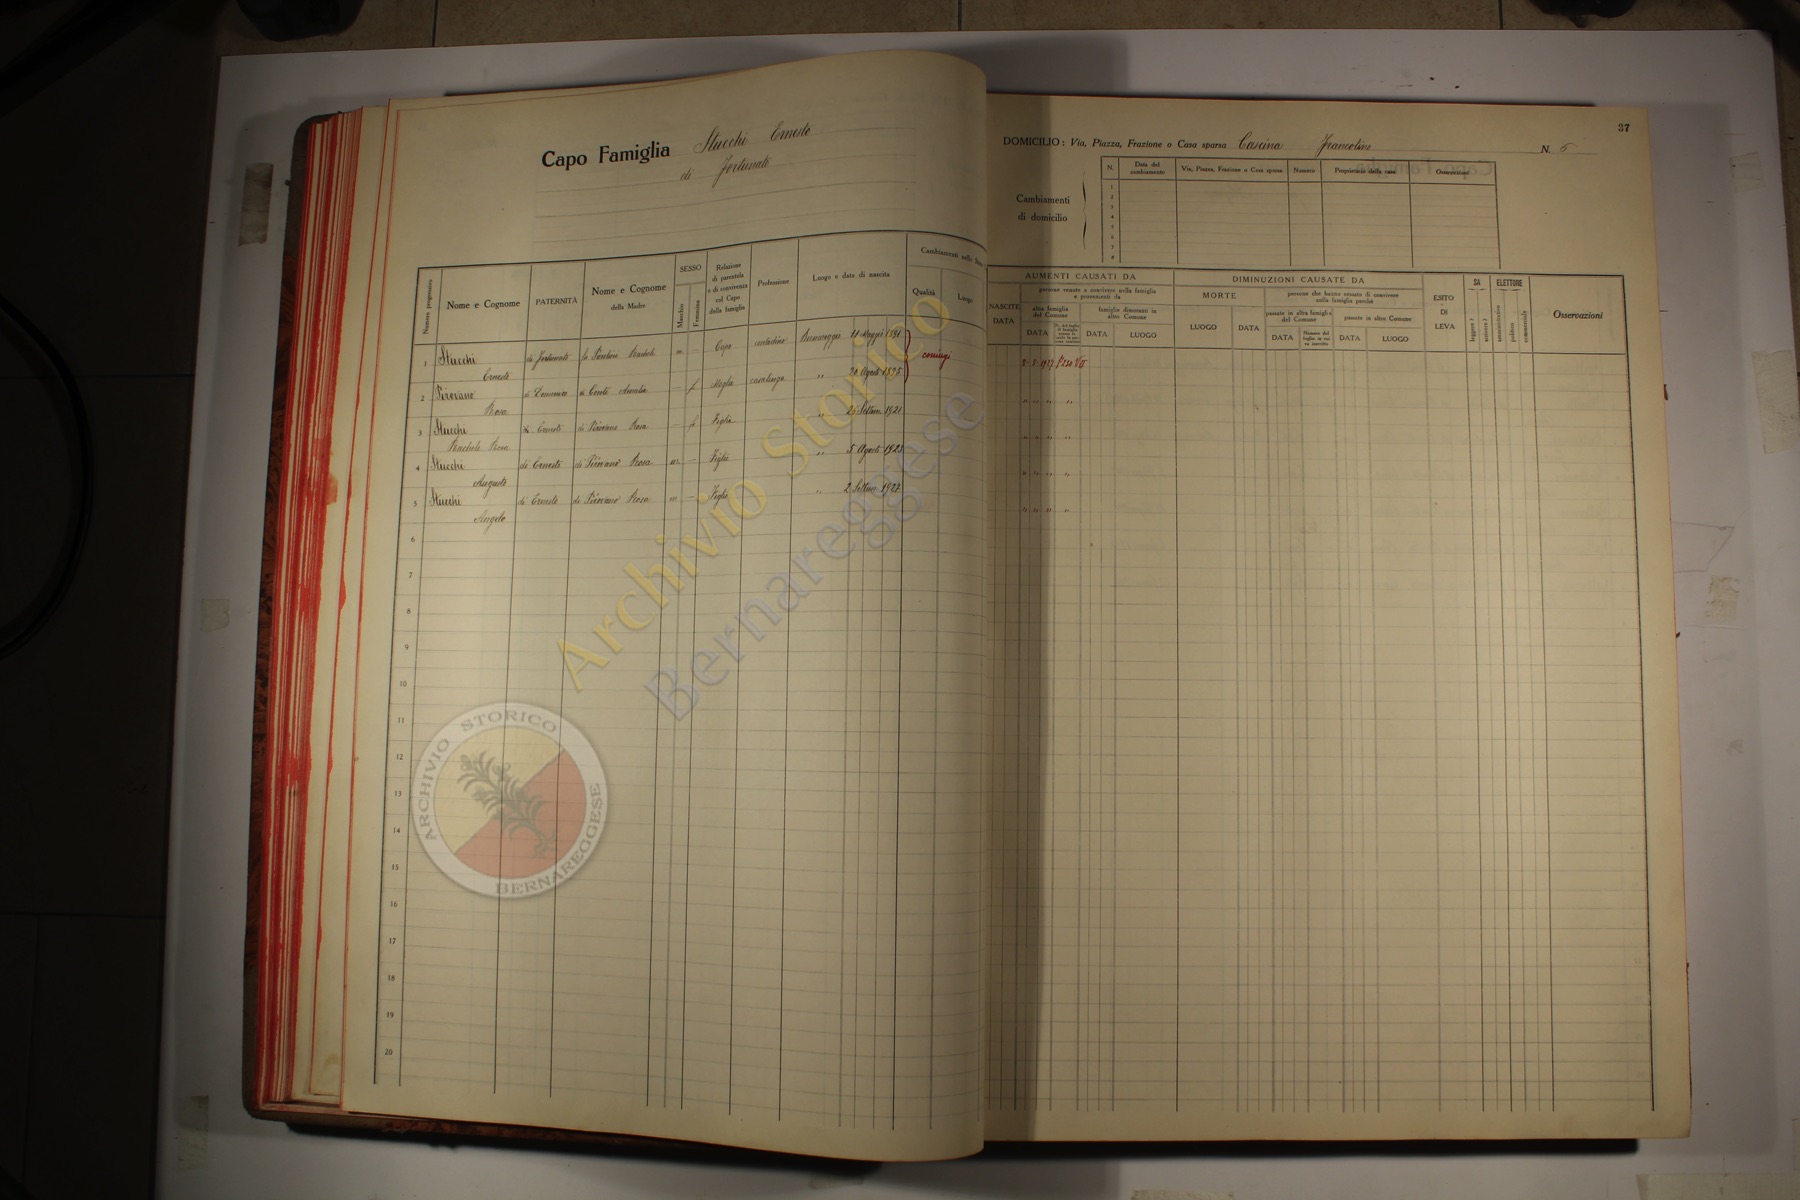 37
Capo Famiglia Stucchi Ernesto
di Fortunato
DOMICILIO: Via, Piazza, Frazione o Casa sparsa Cascina Francolino N. 6
Cambiamenti
di domicilio
N. Data del cambiamento Via, Piazza, Frazione o Casa sparsa Numero Proprietario della casa Osservazioni
1
2
3
4
5
6
7
8
Numero progressivo
Nome e Cognome
PATERNITÀ
Nome e Cognome
della Madre
SESSO
Maschio
Femmina
Relazione
di parentela
o di convivenza
col Capo
della famiglia
Professione
Luogo e data di nascita
Cambiamenti nello
Qualità
Luogo
NASCITE
DATA
AUMENTI CAUSATI DA
persone venute a convivere nella famiglia
e provenienti da
altra famiglia
del Comune
famiglie dimoranti in
altro Comune
DATA
DATA
LUOGO
DIMINUZIONI CAUSATE DA
MORTE
LUOGO
DATA
persone che hanno cessato di convivere
nella famiglia perchè
passate in altra famiglia
del Comune
passate in altro Comune
DATA
Numero del
foglio in cui
va inscritto
DATA
LUOGO
ESITO
DI
LEVA
SA
leggere
scrivere
ELETTORE
amministrativo
politico
commerciale
Osservazioni
1 Stucchi di Fortunato m. — Capo contadino Bernareggio 11 Maggio 1891 coniugi 2-5-1927
Ernesto
2 Pirovano di Domenico di Conte Amalia — f Moglie casalinga " 20 Agosto 1895 " " " "
Rosa
3 Stucchi di Ernesto di Pirovano Rosa — f Figlia " 26 Settem. 1921 " " " "
Rachele Rosa
4 Stucchi di Ernesto di Pirovano Rosa m. — Figlio " 5 Agosto 1923 " " " "
Augusto
5 Stucchi di Ernesto di Pirovano Rosa m — Figlio " 2 Settem. 1927 " " " "
Angelo
6
7
8
9
10
11
12
13
14
15
16
17
18
19
20
Archivio Storico
Bernareggese
ARCHIVIO STORICO
BERNAREGGESE